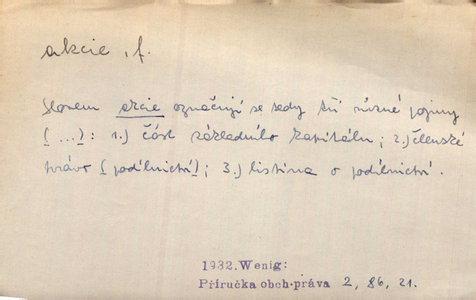 akcie, f.
Slovem akcie označují se tedy tři různé pojmy
(...): 1.) část základního kapitálu; 2.) členské
právo (podílnictví); 3.) listina o podílnictví.
1932. Wenig:
Příručka obch. práva 2, 86, 21.